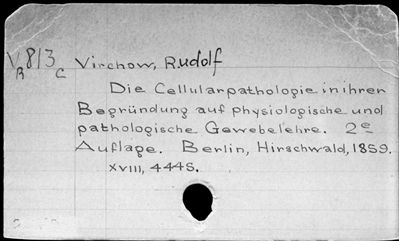 V813 Virchow, Rudolf
B C
Die Cellularpathologie in ihrer
Begründung auf physiologische und
pathologische Gewebelehre. 2e
Auflage. Berlin, Hirschwald, 1859.
XVIII, 444S.